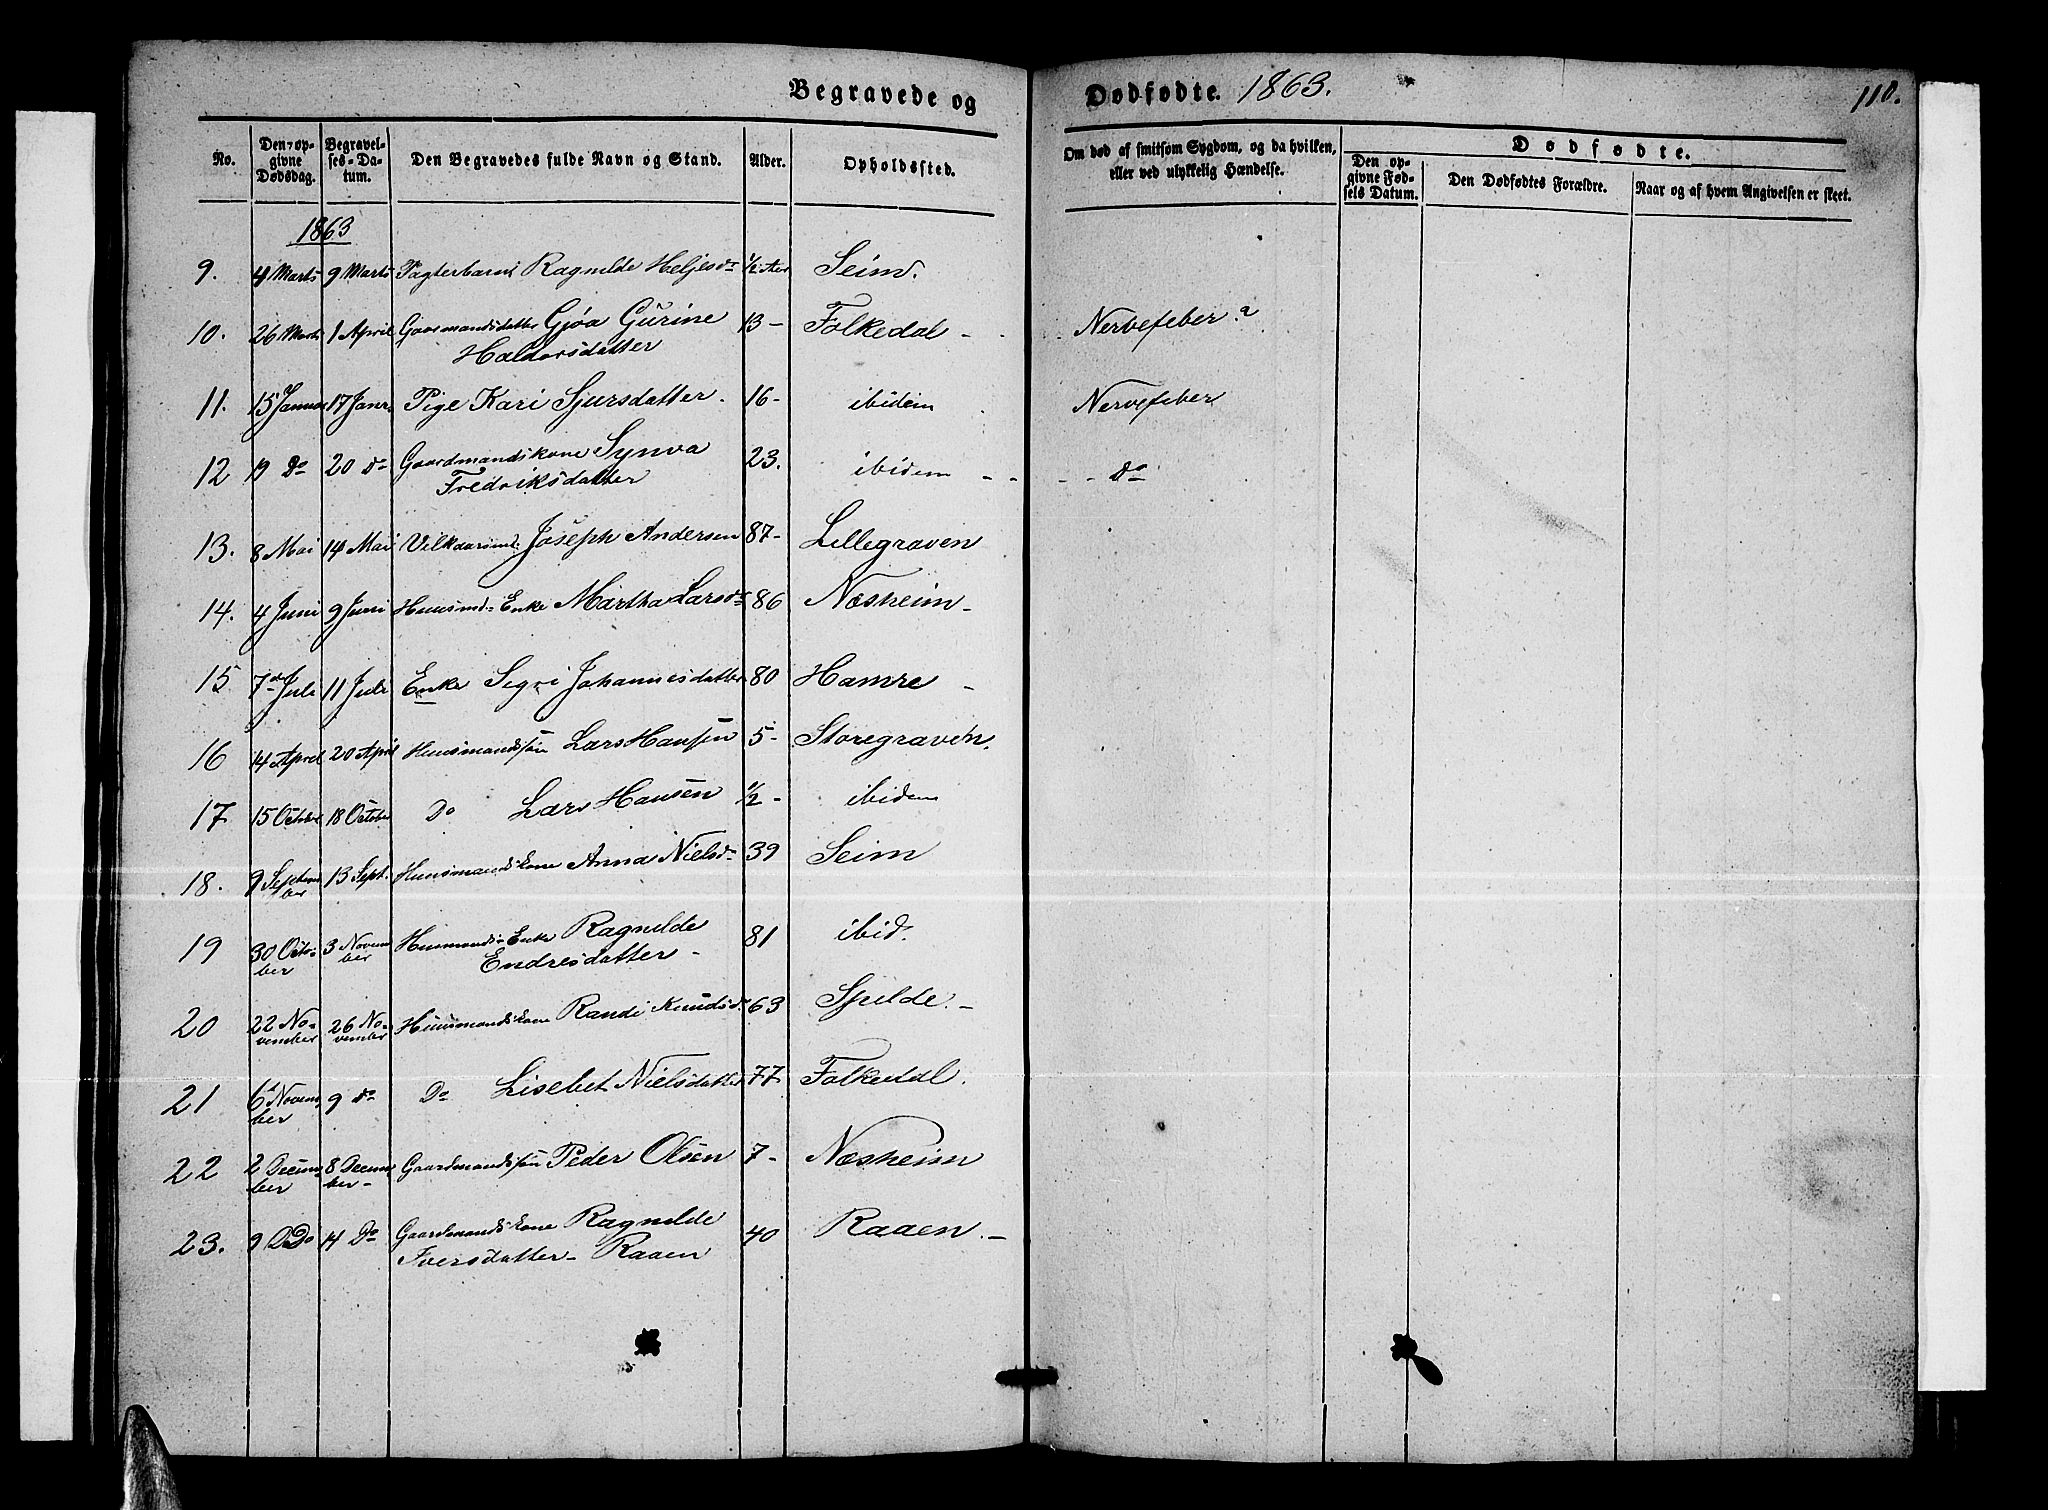 Begravede og
Dødfødte. 1863.
110.
No.
Den opgivne Dødsdag.
Begravelses-Datum.
Den Begravedes fulde Navn og Stand.
Alder.
Opholdssted.
Om død af smitsom Sygdom, og da hvilken,
eller ved ulykkelig Hændelse.
Dødfødte.
Den opgivne Fødsels Datum.
Den Dødfødtes Forældre.
Naar og af hvem Angivelsen er skeet.
1863
9. 4 Marts 9 Marts Ragnilde Heljesdr 1/2 Aar Seim.
10. 26 Marts 1 April Gaarmandsdatter Gjøa Gurine 13- Folkedal - Nervefeber?
Haldorsdatter
11. 15 Januar 17 Janr. Pige Kari Sjursdatter. 16- ibidem Nervefeber
12 19 Do 20 do Gaardmandskone Synva 23. ibidem - do
Fredriksdatter
13. 8 Mai 14 Mai Joseph Andersen 87- Lillegraven
14. 4 Juni 9 Juni Huusmds Enke Martha Larsdr 86 Næsheim-
15 7de Juli 11 Juli Enke Segri Johannesdatter 80 Hamre -
16 14 April 20 April Huusmandssøn Lars Hansen 5- Storegraven.
17 15 October 18 October Do Lars Hansen 1/2- ibidem
18. 9 September 13 Sept. Huusmandskone Anna Nielsdr 39 Seim
19 30 October 3 November Huusmands Enke Ragnilde 81 ibid.
Endresdatter -
20 22 November 26 November Huusmandskone Randi Knudsdr 63 Spilde.-
21 6 November 9 do Do Lisebet Nielsdatter 77 Folkedal.
22 2 December 8 December- Gaardmandssøn Peder Olsen 7- Næsheim
23. 9 Do 14 Do Gaardmandskone Ragnilde 40 Raaen.-
Iversdatter- Raaen